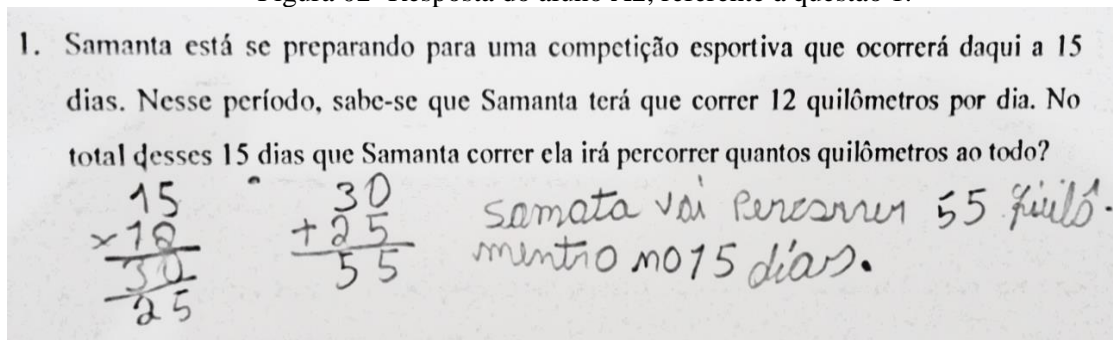 1. Samanta está se preparando para uma competição esportiva que ocorrerá daqui a 15
dias. Nesse período, sabe-se que Samanta terá que correr 12 quilômetros por dia. No
total desses 15 dias que Samanta correr ela irá percorrer quantos quilômetros ao todo?
15
×12
30
25
30
+25
55
samata vai Percorrer 55 quilô-
mentro no 15 días.